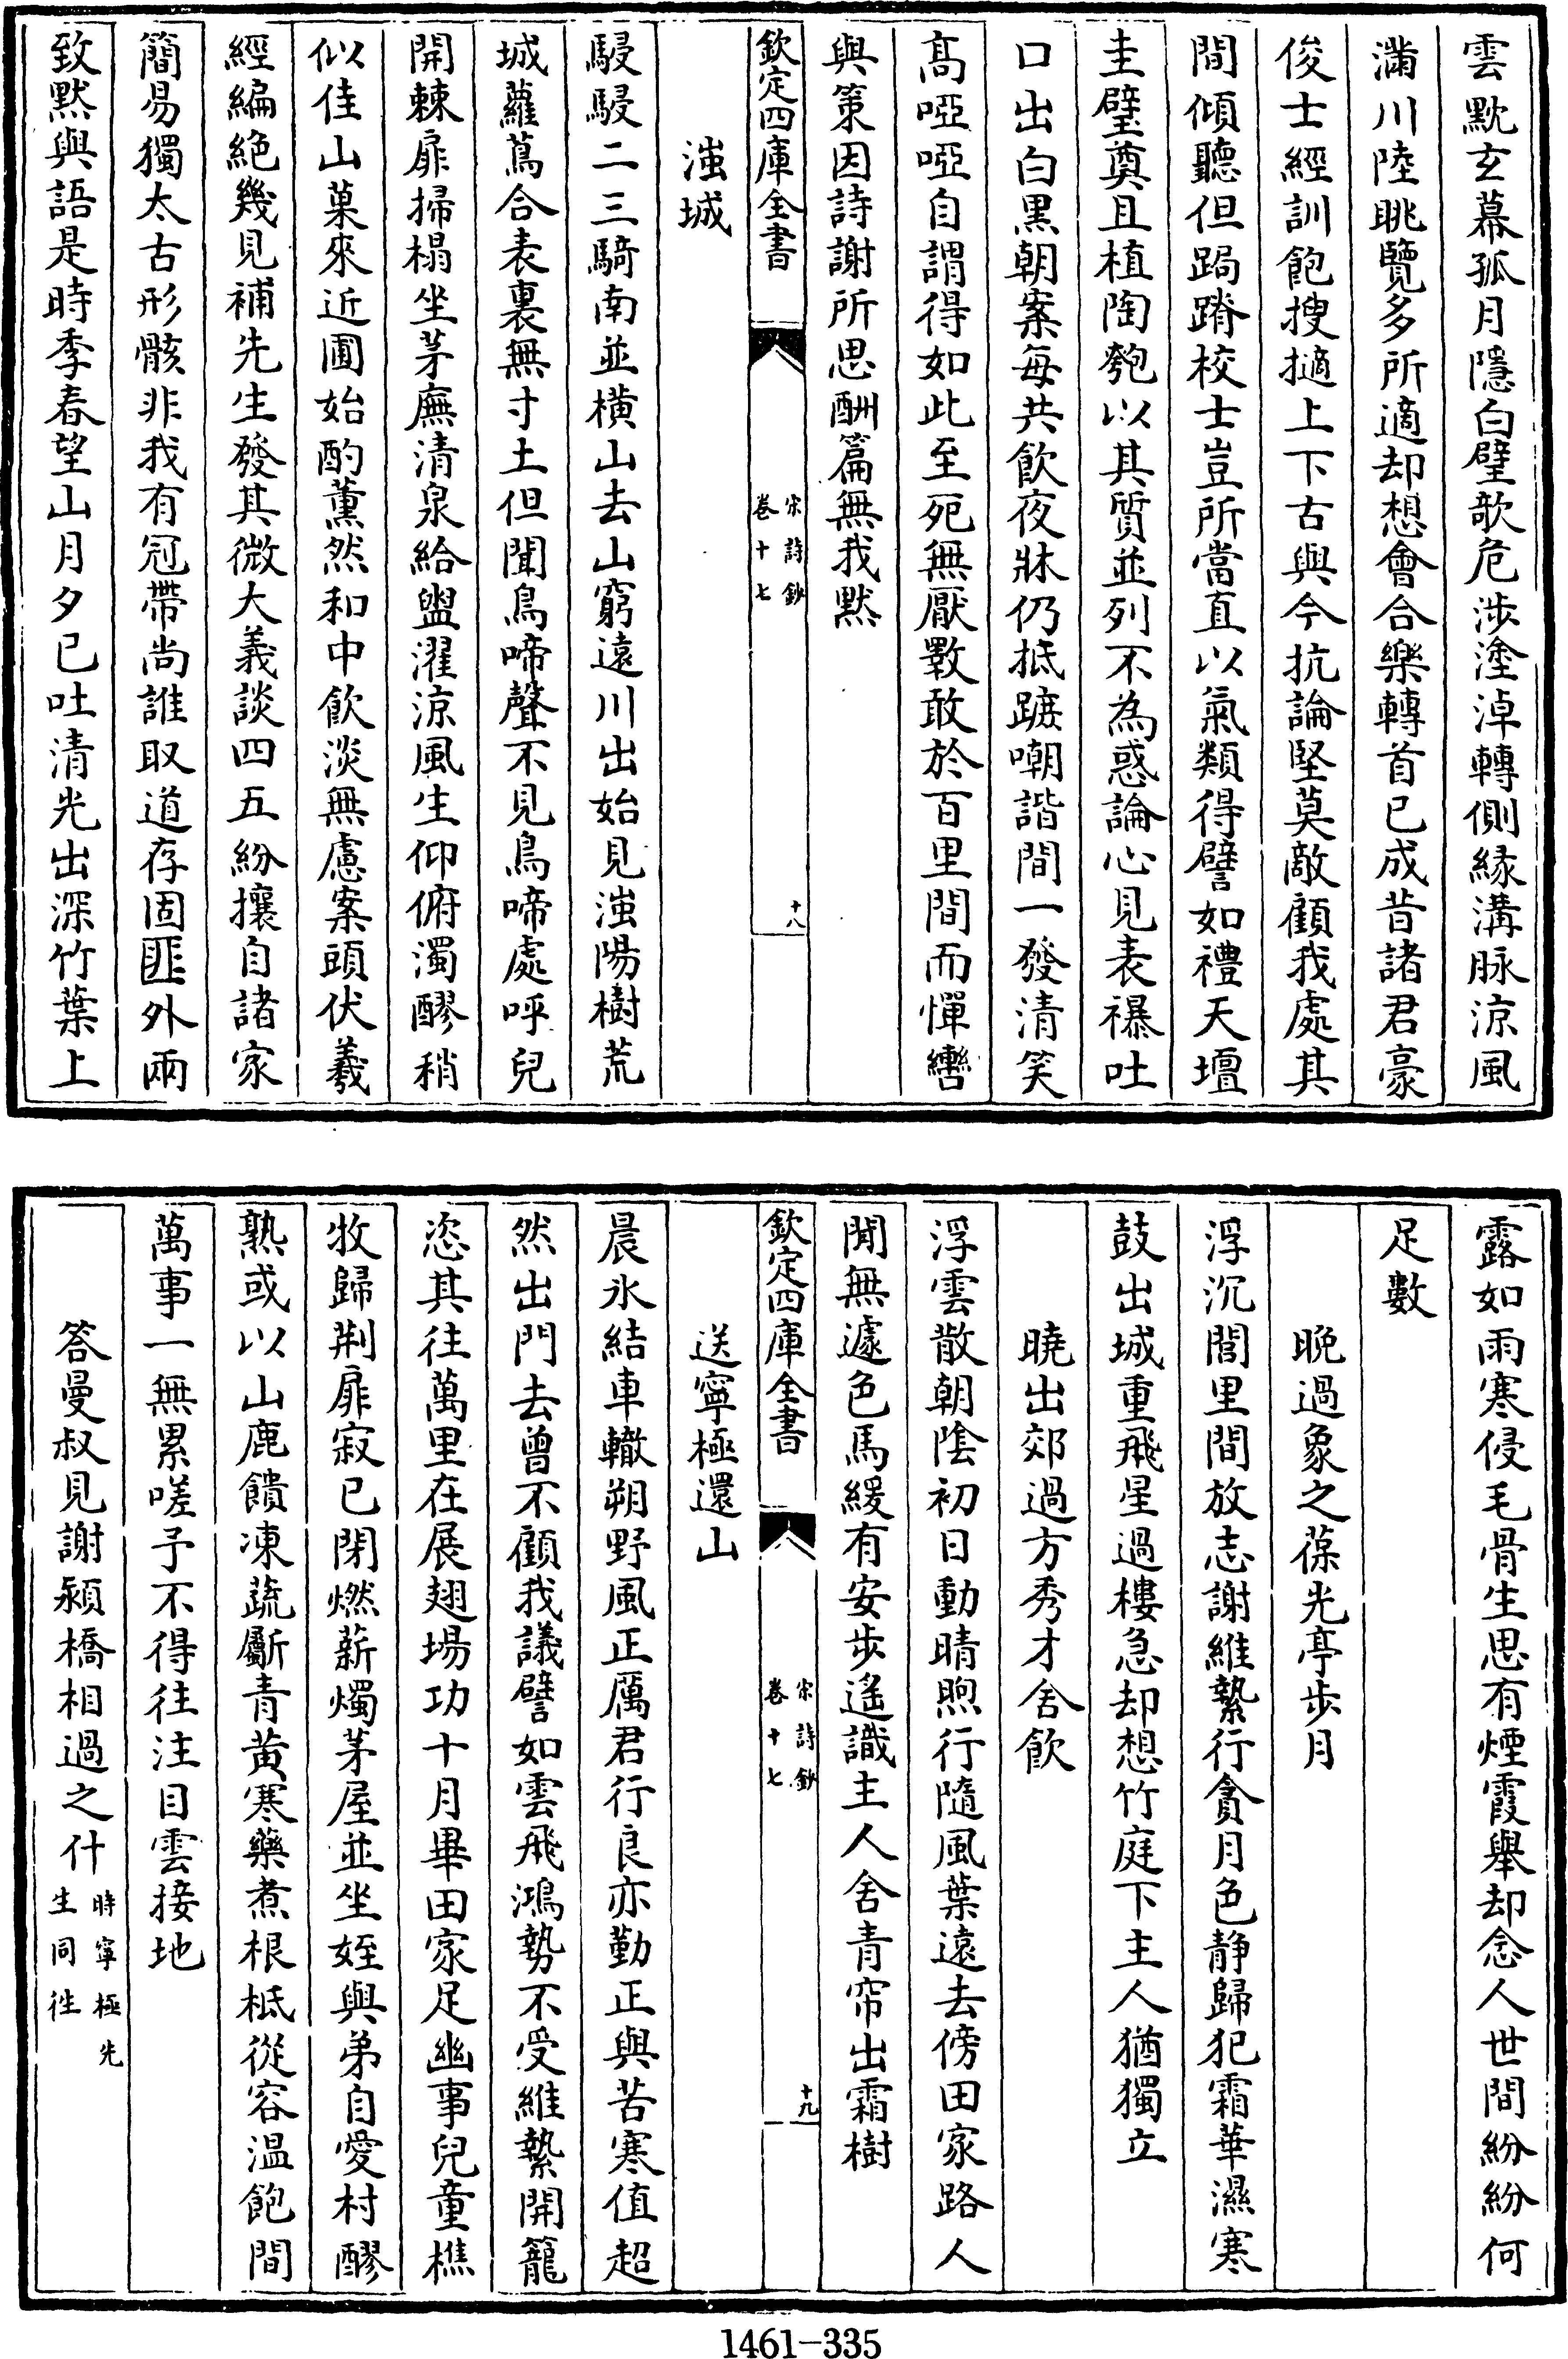 雲黕玄幕孤月隱白璧欹危涉塗淖轉側縁溝脉涼風
滿川陸眺覽多所適却想會合樂轉首已成昔諸君豪
俊士經訓飽搜擿上下古與今抗論堅莫敵顧我處其
間傾聽但跼蹐校士豈所當直以氣類得譬如禮天壇
圭璧奠且植陶匏以其質並列不為惑論心見表襮吐
口出白黒朝案每共飲夜牀仍抵蹠嘲諧間一發清笑
髙啞啞自謂得如此至死無厭斁敢於百里間而憚轡
與策因詩謝所思酬篇無我黙
欽定四庫全書
宋詩鈔
卷十七
十八
滍城
駸駸二三騎南並橫山去山窮遠川出始見滍陽樹荒
城蘿蔦合表裏無寸土但聞鳥啼聲不見鳥啼處呼兒
開棘扉掃榻坐茅廡清泉給盥濯涼風生仰俯濁醪稍
似佳山菓來近圃始酌薰然和中飲淡無慮案頭伏羲
經編絶幾見補先生發其微大義談四五紛攘自諸家
簡易獨太古形骸非我有冠帶尚誰取道存固匪外兩
致黙與語是時季春望山月夕已吐清光出深竹葉上
露如雨寒侵毛骨生思有煙霞舉却念人世間紛紛何
足數
晚過象之葆光亭步月
浮沉閭里間放志謝維縶行貪月色靜歸犯霜華濕寒
鼓出城重飛星過樓急却想竹庭下主人猶獨立
曉出郊過方秀才舍飲
浮雲散朝陰初日動晴煦行隨風葉遠去傍田家路人
閒無遽色馬緩有安步遙識主人舍青帘出霜樹
欽定四庫全書
宋詩鈔
卷十七
十九
送寧極還山
晨氷結車轍朔野風正厲君行良亦勤正與苦寒值超
然出門去曾不顧我議譬如雲飛鴻勢不受維縶開籠
恣其往萬里在展翅場功十月畢田家足幽事兒童樵
牧歸荆扉寂已閉燃薪燭茅屋並坐姪與弟自愛村醪
熟或以山鹿饋凍蔬斸青黄寒藥煮根柢從容溫飽間
萬事一無累嗟予不得往注目雲接地
答曼叔見謝潁橋相過之什時寧極先
生同徃
1461-335